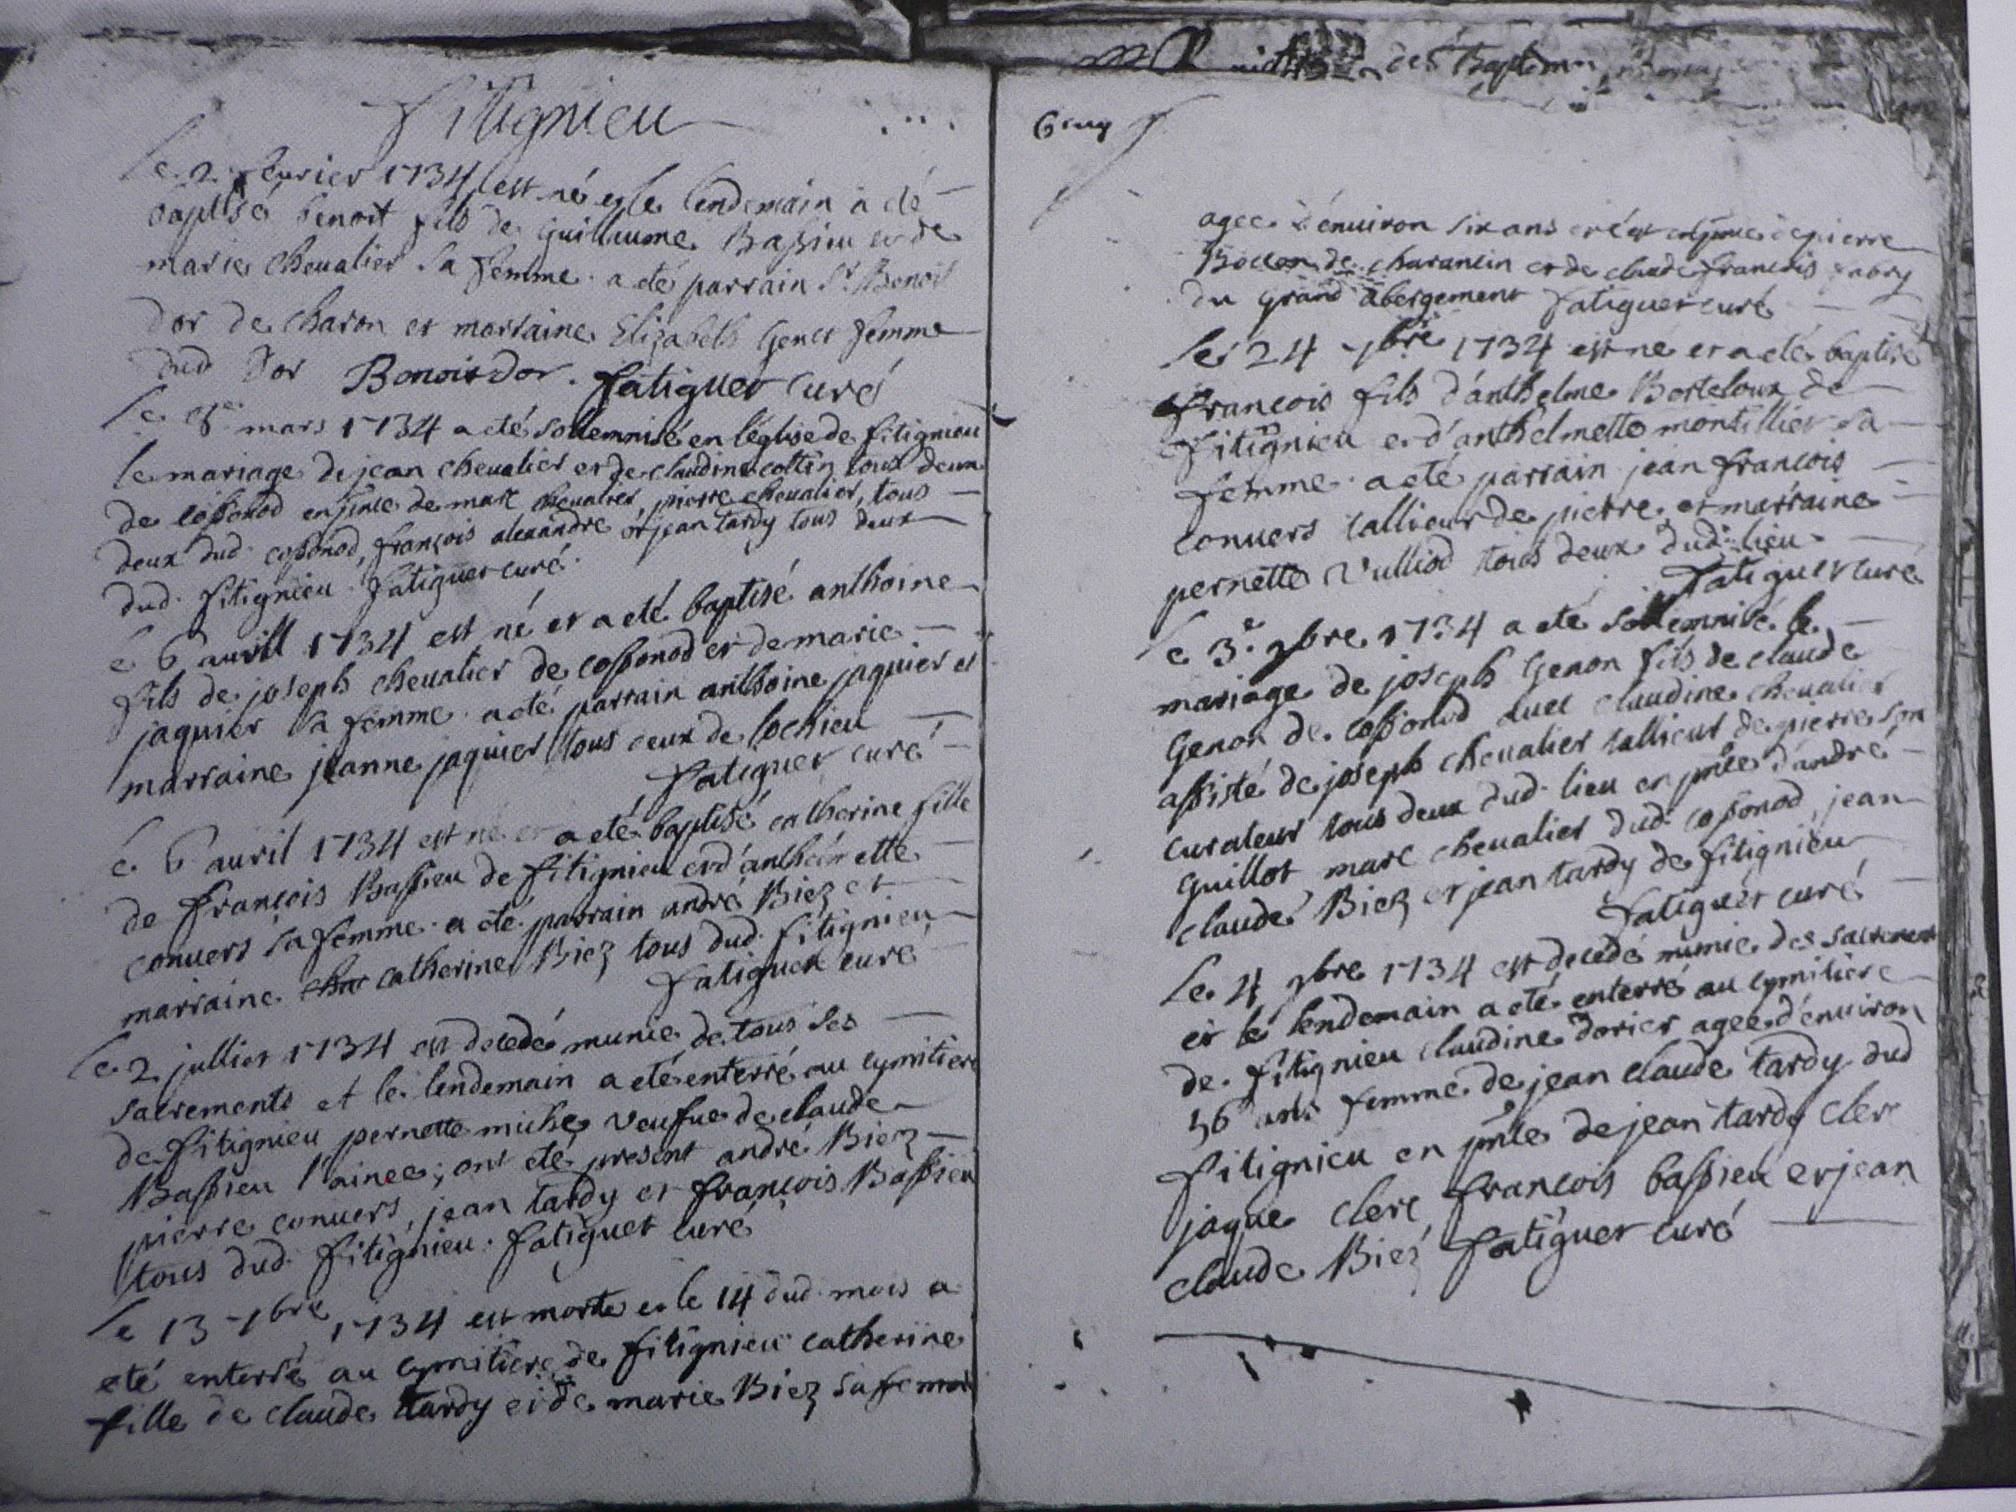 fitignieu
le 2 feurier 1734 est né et le lendemain a été
baptisé benoit fils de guillaume Bassieu et de
marie cheualier sa femme. a eté parrain Sr Benoit
Dor de charon et marraine Elizabeth Genet femme
dud Dor Benoit dor. fatiguet curé
le 8e mars 1734 a eté sollemnisé en l'église de fitignieu
le mariage de jean cheualier et de claudine cottin tous deux
de cossonod en pnce de marc cheualier, pierre cheualier, tous
deux dud. cossonod, françois alexandre et jean tardy tous deux
dud. fitignieu. fatiguet curé.
le 6 auril 1734 est né et a eté baptisé anthoine
fils de joseph cheualier de cossonod et de marie
jaquier sa femme. a eté parrain anthoine jaquier et
marraine jeanne jaquier tous ceux de lochieu
fatiguet curé
le 6 auril 1734 est né et a eté baptisé catherine fille
de françois Bassieu de fitignieu et d'anthelmette
conuers sa femme. a eté parrain andré Biez et
marraine cha catherine Biez tous dud. fitignieu
fatiguet curé
le 2 jullier 1734 est decedé munie de tous ses
sacrements et le lendemain a eté enterré au cymitiere
de fitignieu pernette miche veufue de claude
Bassieu l'ainee; ont eté present andré Biez
pierre conuers, jean tardy et françois Bassieu
tous dud. fitignieu. fatiguet curé
le 13 7bre 1734 est morte et le 14 dud. mois a
eté enterré au cymitiere de fitignieu catherine
fille de claude tardy et de marie Biez sa femme
des Baptemes
agee d'enuiron six ans de pierre
de charancin et de claude françois fabry
du grand abergement fatiguet curé
le 24 7bre 1734 est né et a eté baptisé
françois fils d'anthelme Berteloux de
fitignieu et d'anthelmette montillier sa
femme. a eté parrain jean françois
conuers tallieur de pierre et marraine
pernette vulliod tous deux dud. lieu
fatiguet curé
le 3e 9bre 1734 a eté sollemnisé le
mariage de joseph Genon fils de claude
Genon de cossonod auec claudine cheualier
assisté de joseph cheualier tallieur de pierre son
curateur tous deux dud. lieu en pnce d'andré
guillot marc cheualier dud. cossonod, jean
claude Biez et jean tardy de fitignieu
fatiguet curé
le 4 9bre 1734 est decedé munie des sacrements
et le lendemain a eté enterré au cymitiere
de fitignieu claudine dorier agee d'enuiron
36 ans femme de jean claude tardy dud
fitignieu en pnce de jean tardy clerc
jaque clerc françois bassieu et jean
claude Biez fatiguet curé